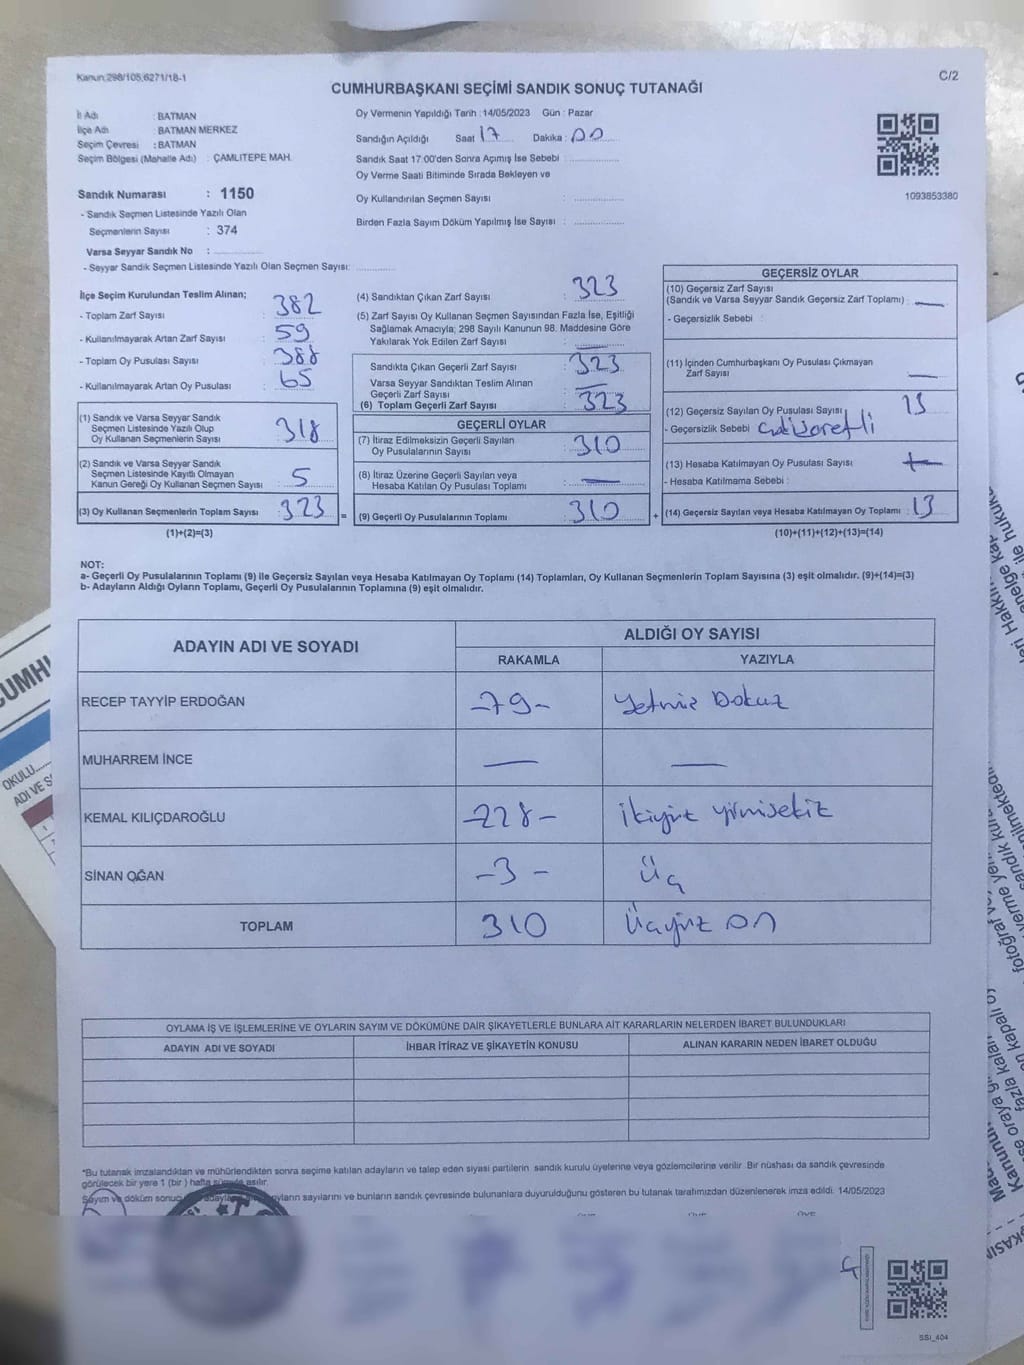 Kanun;298/105,6271/18-1
C/2
CUMHURBAŞKANI SEÇİMİ SANDIK SONUÇ TUTANAĞI
İl Adı : BATMAN
İlçe Adı : BATMAN MERKEZ
Seçim Çevresi : BATMAN
Seçim Bölgesi (Mahalle Adı) : ÇAMLITEPE MAH.
Sandık Numarası : 1150
- Sandık Seçmen Listesinde Yazılı Olan
Seçmenlerin Sayısı : 374
Varsa Seyyar Sandık No :
- Seyyar Sandık Seçmen Listesinde Yazılı Olan Seçmen Sayısı:
Oy Vermenin Yapıldığı Tarih : 14/05/2023 Gün : Pazar
Sandığın Açıldığı Saat 17 Dakika : 00
Sandık Saat 17:00'den Sonra Açımış İse Sebebi :
Oy Verme Saati Bitiminde Sırada Bekleyen ve
Oy Kullandırılan Seçmen Sayısı :
Birden Fazla Sayım Döküm Yapılmış İse Sayısı :
1093853380
İlçe Seçim Kurulundan Teslim Alınan;
- Toplam Zarf Sayısı : 382
- Kullanılmayarak Artan Zarf Sayısı : 59
- Toplam Oy Pusulası Sayısı : 388
- Kullanılmayarak Artan Oy Pusulası : 65
(1) Sandık ve Varsa Seyyar Sandık
Seçmen Listesinde Yazılı Olup
Oy Kullanan Seçmenlerin Sayısı : 318
(2) Sandık ve Varsa Seyyar Sandık
Seçmen Listesinde Kayıtlı Olmayan
Kanun Gereği Oy Kullanan Seçmen Sayısı : 5
(3) Oy Kullanan Seçmenlerin Toplam Sayısı : 323 =
(1)+(2)=(3)
(4) Sandıktan Çıkan Zarf Sayısı : 323
(5) Zarf Sayısı Oy Kullanan Seçmen Sayısından Fazla İse, Eşitliği
Sağlamak Amacıyla; 298 Sayılı Kanunun 98. Maddesine Göre
Yakılarak Yok Edilen Zarf Sayısı : —
Sandıkta Çıkan Geçerli Zarf Sayısı : 323
Varsa Seyyar Sandıktan Teslim Alınan
Geçerli Zarf Sayısı : —
(6) Toplam Geçerli Zarf Sayısı : 323
GEÇERLİ OYLAR
(7) İtiraz Edilmeksizin Geçerli Sayılan
Oy Pusulalarının Sayısı : 310
(8) İtiraz Üzerine Geçerli Sayılan veya
Hesaba Katılan Oy Pusulası Toplamı : —
(9) Geçerli Oy Pusulalarının Toplamı : 310 +
GEÇERSİZ OYLAR
(10) Geçersiz Zarf Sayısı
(Sandık ve Varsa Seyyar Sandık Geçersiz Zarf Toplamı) : —
- Geçersizlik Sebebi :
(11) İçinden Cumhurbaşkanı Oy Pusulası Çıkmayan
Zarf Sayısı : —
(12) Geçersiz Sayılan Oy Pusulası Sayısı : 13
- Geçersizlik Sebebi :
(13) Hesaba Katılmayan Oy Pusulası Sayısı : —
- Hesaba Katılmama Sebebi :
(14) Geçersiz Sayılan veya Hesaba Katılmayan Oy Toplamı : 13
(10)+(11)+(12)+(13)=(14)
NOT:
a- Geçerli Oy Pusulalarının Toplamı (9) ile Geçersiz Sayılan veya Hesaba Katılmayan Oy Toplamı (14) Toplamları, Oy Kullanan Seçmenlerin Toplam Sayısına (3) eşit olmalıdır. (9)+(14)=(3)
b- Adayların Aldığı Oyların Toplamı, Geçerli Oy Pusulalarının Toplamına (9) eşit olmalıdır.
ADAYIN ADI VE SOYADI
ALDIĞI OY SAYISI
RAKAMLA YAZIYLA
RECEP TAYYİP ERDOĞAN -79- Yetmiş Dokuz
MUHARREM İNCE — —
KEMAL KILIÇDAROĞLU -228- ikiyüz yirmisekiz
SİNAN OĞAN -3- Üç
TOPLAM 310 Üçyüz on
OYLAMA İŞ VE İŞLEMLERİNE VE OYLARIN SAYIM VE DÖKÜMÜNE DAİR ŞİKAYETLERLE BUNLARA AİT KARARLARIN NELERDEN İBARET BULUNDUKLARI
ADAYIN ADI VE SOYADI İHBAR İTİRAZ VE ŞİKAYETİN KONUSU ALINAN KARARIN NEDEN İBARET OLDUĞU
*Bu tutanak imzalandıktan ve mühürlendikten sonra seçime katılan adayların ve talep eden siyasi partilerin sandık kurulu üyelerine veya gözlemcilerine verilir. Bir nüshası da sandık çevresinde
görülecek bir yere 1 (bir) hafta süreyle asılır.
Sayım ve döküm sonucu oyların sayılarını ve bunların sandık çevresinde bulunanlara duyurulduğunu gösteren bu tutanak tarafımızdan düzenlenerek imza edildi. 14/05/2023
SSI_404
CUMHU
OKULU
ADI VE S